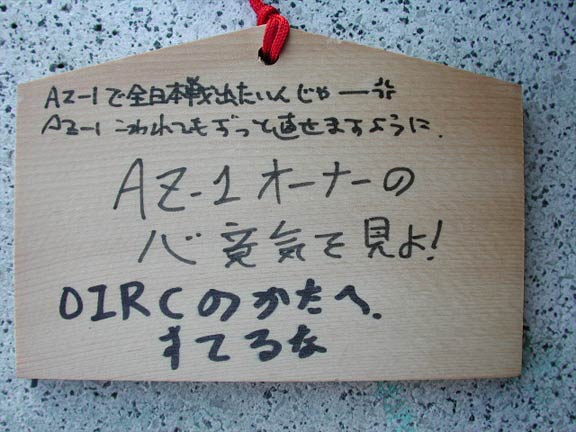 AZ-1で全日本戦出たいんじゃー
AZ-1こわれてもずっと直せますように.
AZ-1オーナーの
心意気を見よ!
OIRCのかたへ.
すてるな